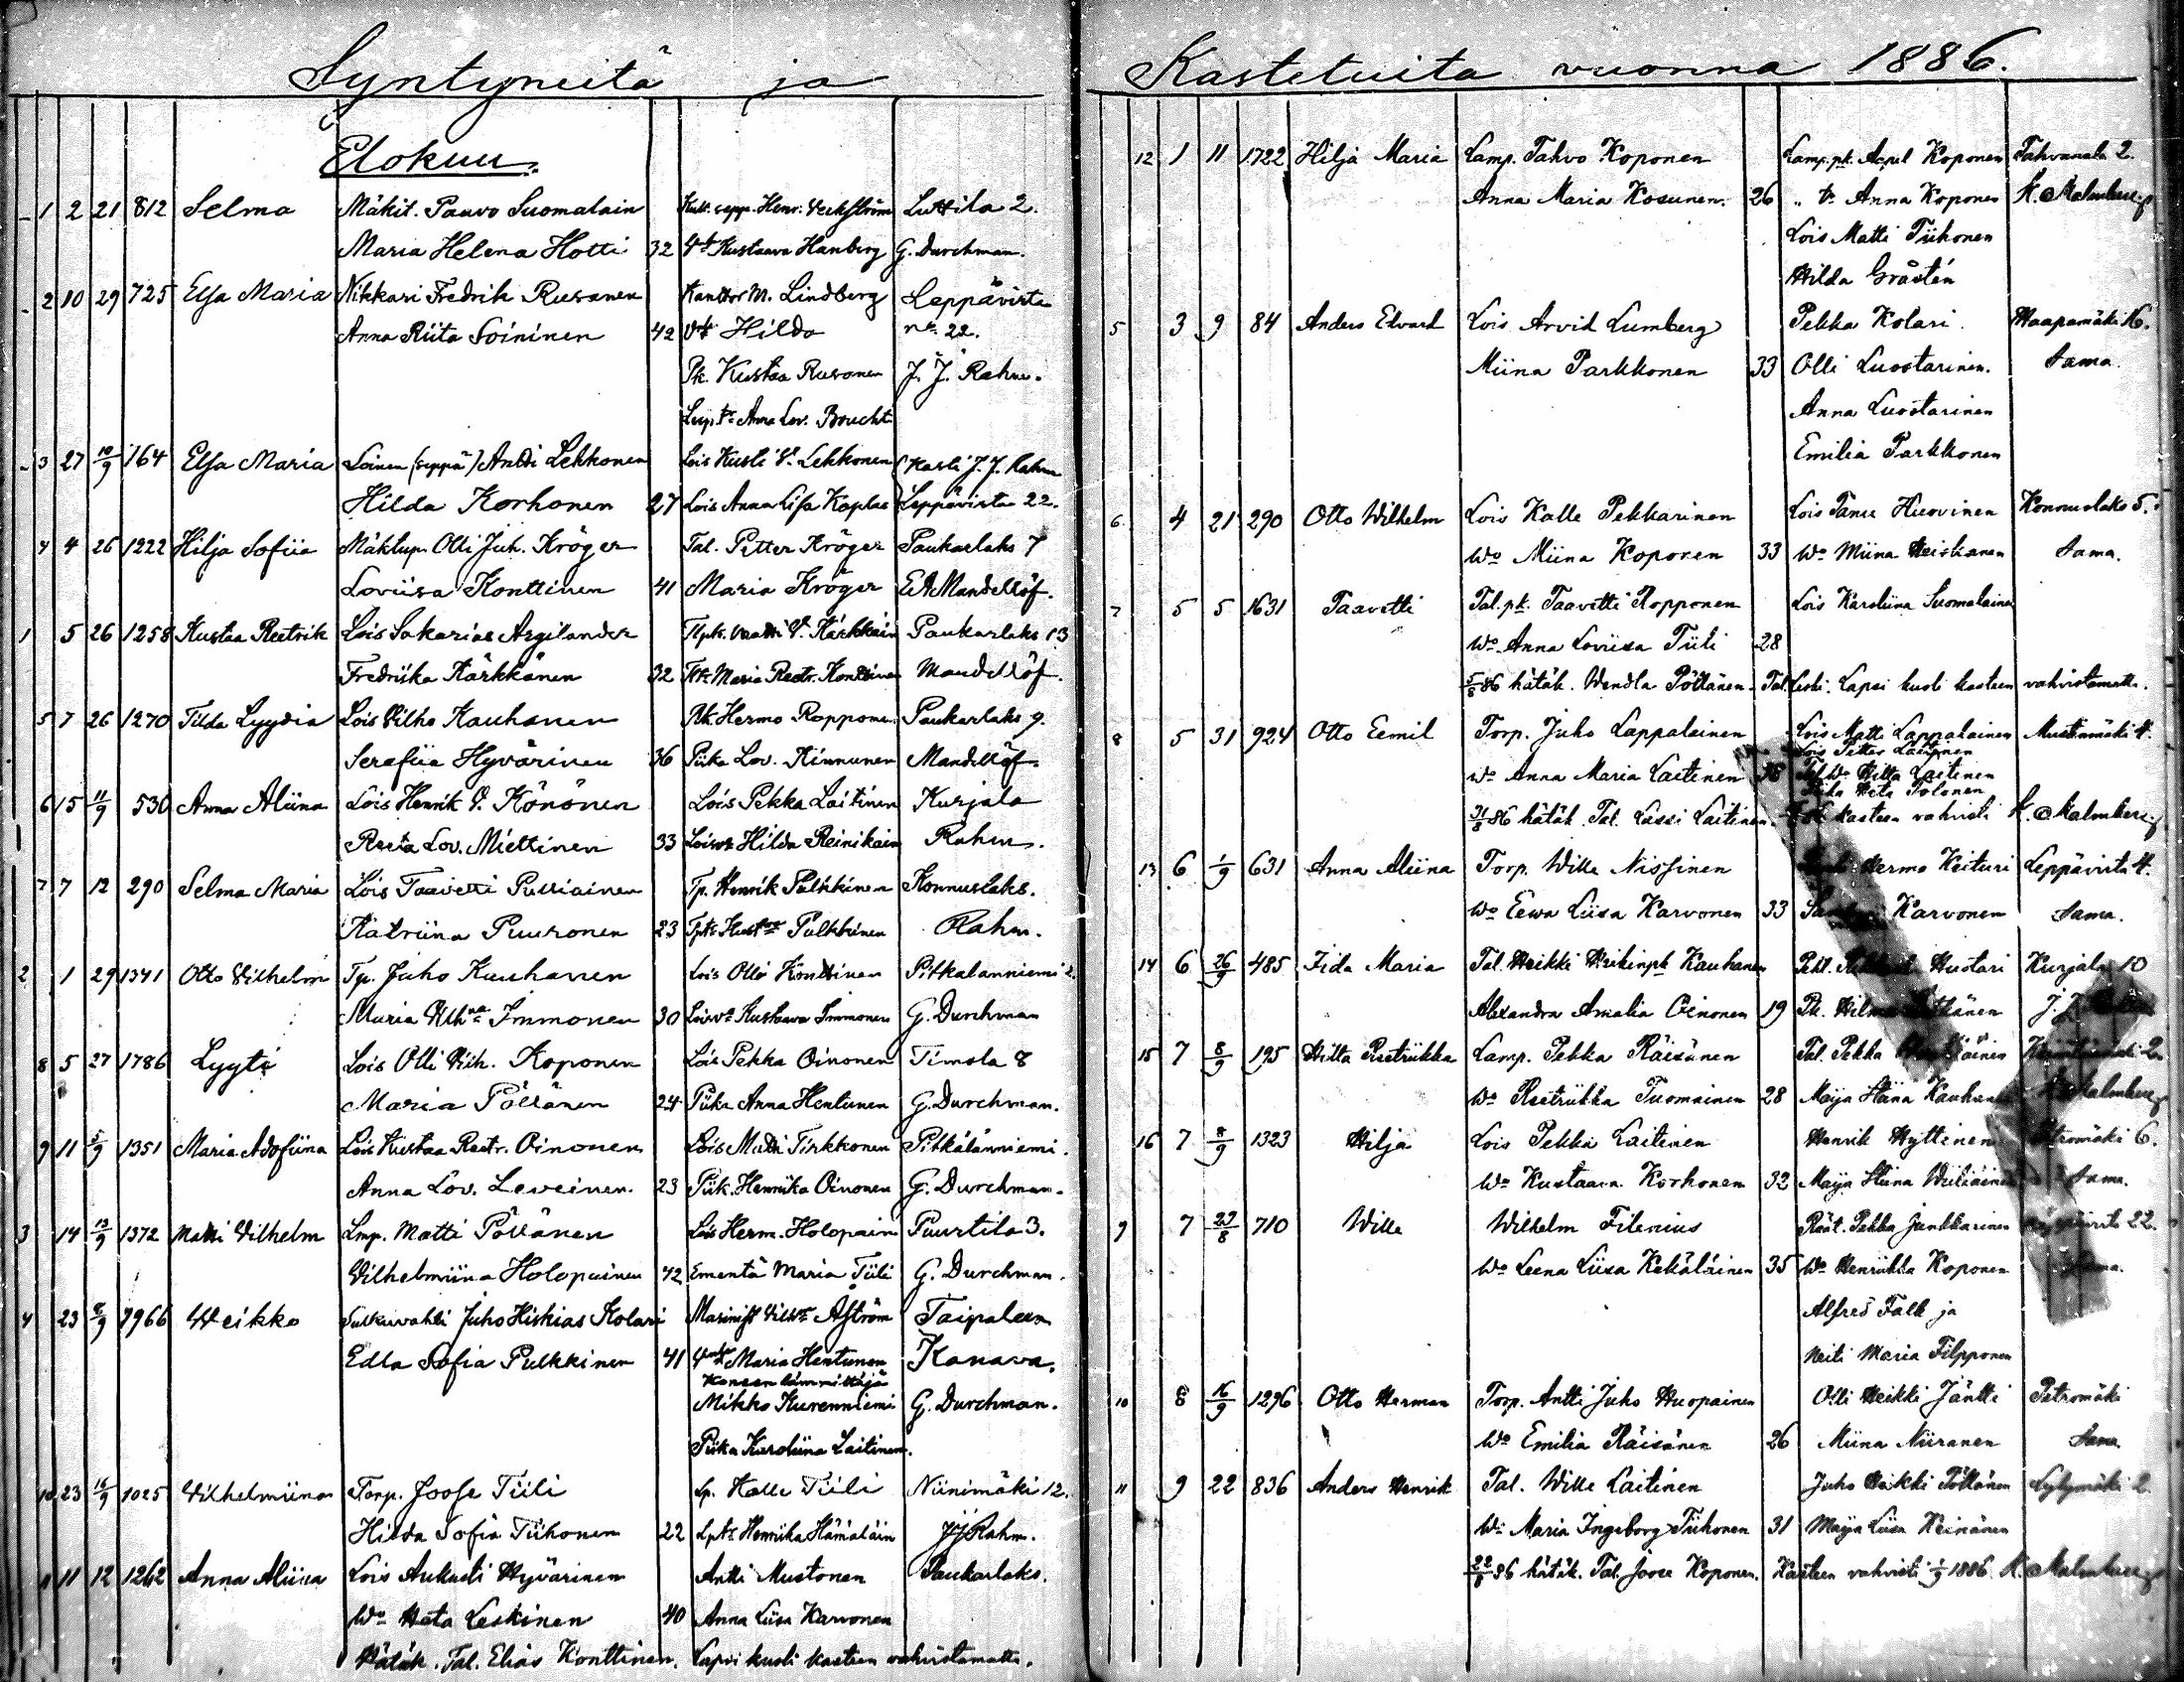 Syntyneitä ja
Elokuu.
1 2 21 812 Selma Mäkit. Paavo Suomalain Kult. sepp. Henr. Veckström Luttila 2.
Maria Helena Hotti 32 Kustaava Hanberg G. Durchman.
2 10 29 725 Elsa Maria Nikkari Fredrik Rusanen Kanttor M. Lindberg Leppävirta
Anna Riita Soininen 42 Hilda nr. 22.
Pk. Kustaa Rusanen J. J. Rahm.
Anna Lov. Brucht
3 27 10/9 164 Elsa Maria Loinen (seppä) Antti Lekkonen Lois Kusti V. Lekkonen J. J. Rahm
Hilda Korhonen 27 Lois Anna Lisa Kaplas Leppävirta 22.
4 4 26 1222 Hilja Sofiia Mäktup. Olli Juh. Kröger Tal. Petter Kröger Paukarlaks 7
Loviisa Konttinen 41 Maria Kröger E A Mandellöf.
1 5 26 1258 Kustaa Reetrik Lois Sakarias Argilander V. Kärkkäin Paukarlaks 13
Fredriika Kärkkänen 32 Maria Reetr. Konttinen Mandellöf.
5 7 26 1270 Tilda Lyydia Lois Vilho Kauhanen Pk. Hermo Ropponen Paukarlaks 9.
Serafiia Hyvärinen 36 Piika Lov. Kinnunen Mandellöf.
6 15 11/9 530 Anna Aliina Lois Henrik V. Könönen Lois Pekka Laitinen Kurjala
Reeta Lov. Miettinen 33 Hilda Reinikain Rahm.
7 7 12 290 Selma Maria Lois Taavetti Pulliainen Tp. Henrik Pulkkinen Konnuslaks.
Katriina Puuronen 23 Pulkkinen Rahm.
2 1 29 1341 Otto Vilhelm Tp. Juho Kauhanen Lois Olli Konttinen Pitkälänniemi 2.
Maria Vilhna Immonen 30 Kustaava Immonen G. Durchman
8 5 27 1786 Lyyti Lois Olli Vih. Koponen Lois Pekka Oinonen Timola 8
Maria Pöllänen 24 Piika Anna Hentunen G. Durchman.
9 11 5/9 1351 Maria Adofiina Lois Kustaa Reetr. Oinonen Lois Matti Tirkkonen Pitkälänniemi.
Anna Lov. Leveinen. 23 Piik. Henrika Oinonen G. Durchman.
3 14 19/9 1372 Matti Vilhelm Lmp. Matti Pöllänen Lois Herm. Holopain Puurtila 3.
Vilhelmiina Holopainen 42 Ementä Maria Tiili G. Durchman.
4 23 9 1966 Weikko Sulkuvahti Juho Hiskias Kolari Åström Taipaleen
Edla Sofia Pulkkinen 41 Maria Hentunen Kanava.
Koneen lämmittäjä
Mikko Kurenniemi G. Durchman.
Piika Karoliina Laitinen.
10 23 16/9 1025 Vilhelmiina Torp. Joose Tiili Lp. Kalle Tiili Niinimäki 12.
Hilda Sofia Tiihonen 22 Henrika Hämäläin J J Rahm.
11 11 12 1262 Anna Aliina Lois Aukusti Hyvärinen Antti Mustonen Paukarlaks.
Wo Heta Leskinen 40 Anna Liisa Karvonen
Hätäk. Tal. Elias Konttinen. Lapsi kuoli kasteen vahvistamatta.
Kastetuita vuonna 1886.
12 1 11 1722 Hilja Maria Lamp. Tahvo Koponen Lamp. pk. Axel Koponen Tahvanala 2.
Anna Maria Kosunen. 26 Anna Koponen K. Malmberg
Lois Matti Tiihonen
Hilda Gråstén
5 3 9 84 Anders Edvard Lois Arvid Lumberg Pekka Kolari. Haapamäki 16.
Miina Parkkonen 33 Olli Luostarinen. Sama.
Anna Luostarinen
Emilia Parkkonen
6. 4 21 290 Otto Wilhelm Lois Kalle Pekkarinen Lois Tanu Huovinen Konnuslaks 5.
Wo Miina Koponen 33 Wo Miina Heiskanen Sama.
7 5 5 1631 Taavetti Tal. pk. Taavetti Ropponen Lois Karoliina Suomalainen
Wo Anna Loviisa Tiili 28
5/8 86 hätäk. Wendla Pöllänen. Tal. Leski. Lapsi kuoli kasteen vahvistamatta.
8 5 31 924 Otto Eemil Torp. Juho Lappalainen Lois Matti Lappalainen Mustinmäki 4.
Lois Petter Laitinen
Wo Anna Maria Laitinen Tal. Wo Hilta Laitinen
Piika Heta Tolonen
31/8 86 hätäk. Tal. Lassi Laitinen. kasteen vahvisti K. Malmberg
13 6 1/9 631 Anna Aliina Torp. Wille Nissinen Hermo Keituri Leppävirta 4.
Wo Eewa Liisa Karvonen 33 Karvonen Sama.
14 6 26/9 485 Iida Maria Tal. Heikki Heikinpk Kauhanen Hustari Kurjala 10
Alexandra Amalia Oinonen 19 Pk. Hilma J. J.
15 7 8/9 195 Hilta Reetriikka Lamp. Pekka Räisänen Tal. Pekka
Wo Reetriikka Tuomainen 28 Maija Stiina Malmberg
16 7 8/9 1323 Hilja Lois Pekka Laitinen Henrik Hyttinen Petromäki 6.
Wo Kustaava Korhonen 32 Maija Stiina Sama.
9 7 29/8 710 Wille Wilhelm Filenius Räät. Pekka Junkkarinen Leppävirta 22.
Wo Leena Liisa Kekäläinen 35 Wo Henriikka Koponen Sama.
Alfred Falk ja
Neiti Maria Filpponen
10 8 16/9 1296 Otto Herman Torp. Antti Juho Huopainen Olli Heikki Jäntti Petromäki
Wo Emilia Räisänen 26 Miina Niiranen Sama.
11 9 22 836 Anders Henrik Tal. Wille Laitinen Juho Heikki Pöllänen Sydymäki 2.
Wo Maria Ingeborg Tiihonen 31 Maija Liisa Heinänen
22/8 86 hätäk. Tal. Joose Koponen. Kasteen vahvisti 1/9 1886 K. Malmberg